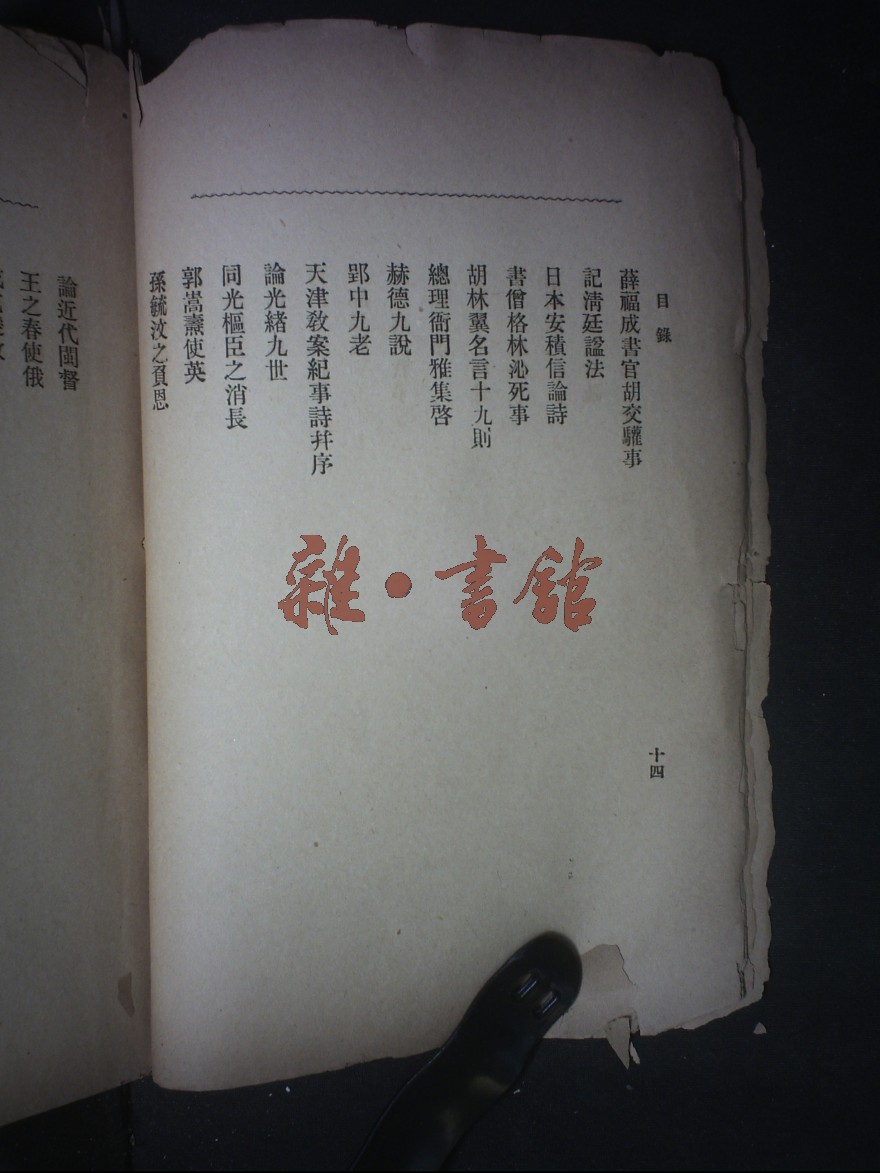 目錄
薛福成書官胡交驩事
記清廷諡法
日本安積信論詩
書僧格林沁死事
胡林翼名言十九則
總理衙門雅集啓
赫德九說
郢中九老
天津敎案紀事詩幷序
論光緒九世
同光樞臣之消長
郭嵩燾使英
孫毓汶之負恩
十四
論近代閩督
王之春使俄
雜·書館